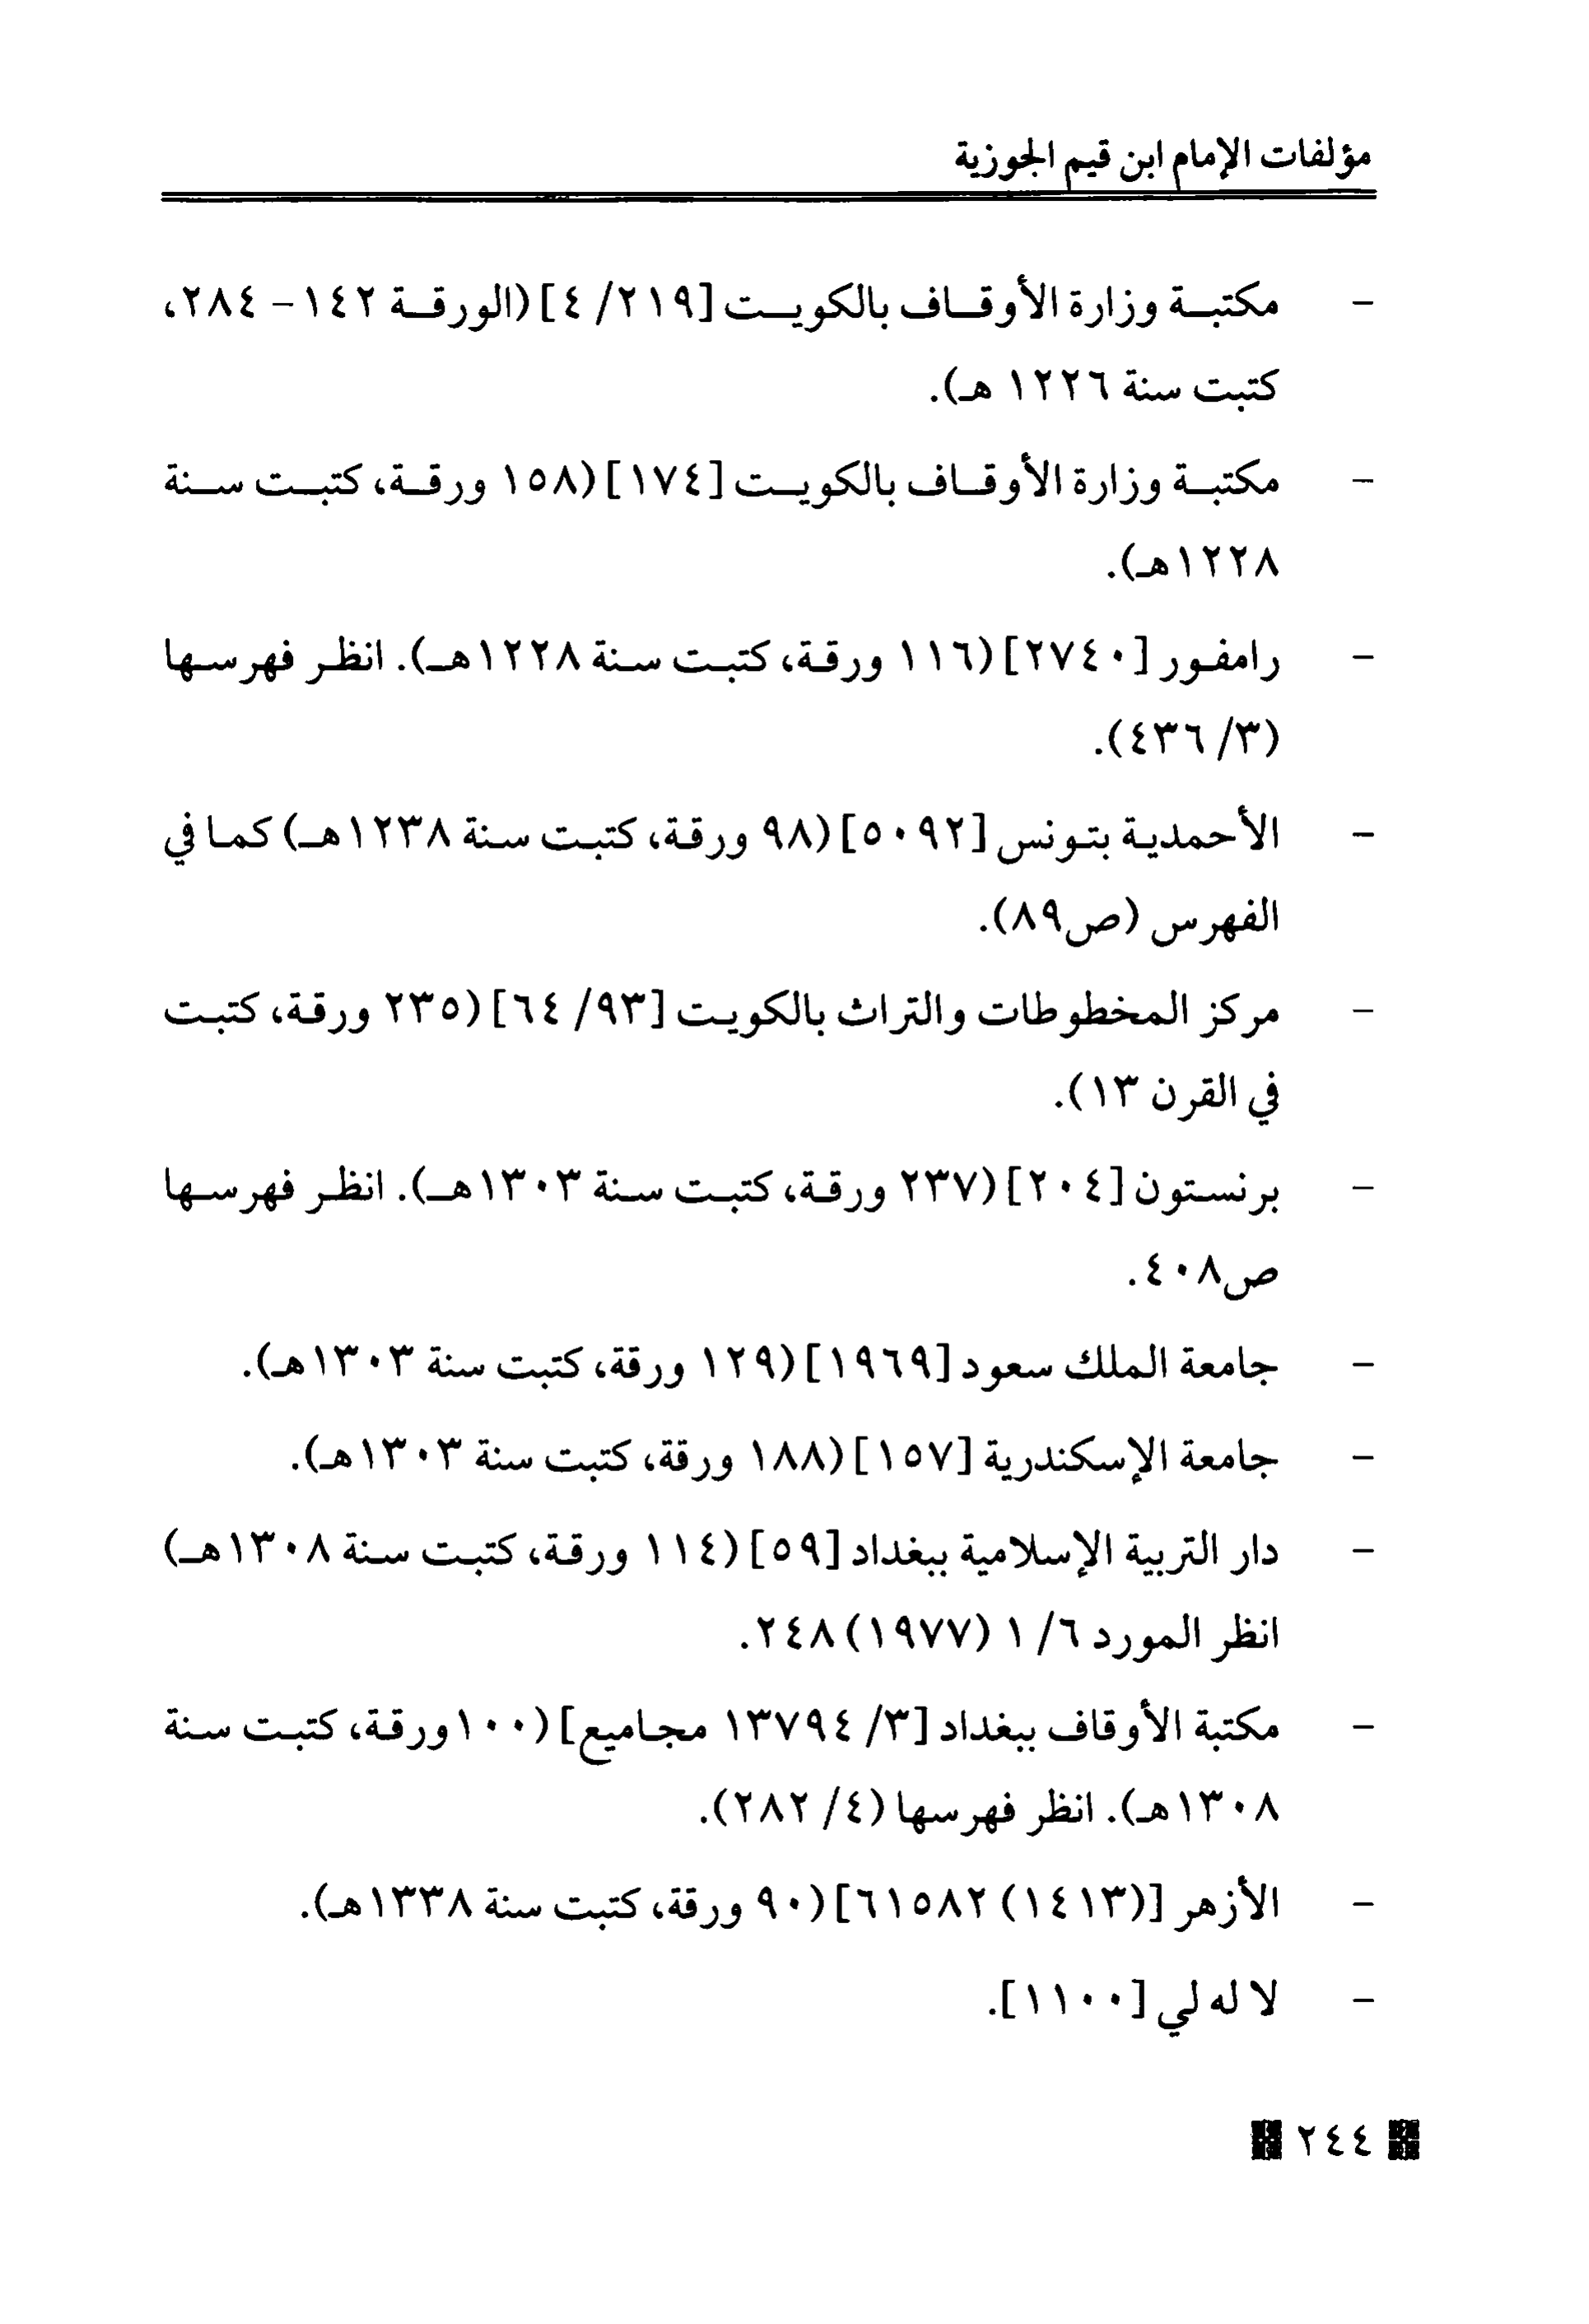 مؤلفات الإمام ابن قيم الجوزية
- مكتبة وزارة الأوقاف بالكويت [٢١٩/ ٤] (الورقة ١٤٢ - ٢٨٤،
كتبت سنة ١٢٢٦ هـ).
- مكتبة وزارة الأوقاف بالكويت [١٧٤] (١٥٨ ورقة، كتبت سنة
١٢٢٨هـ).
- رامفور [٢٧٤٠] (١١٦ ورقة، كتبت سنة ١٢٢٨هـ). انظر فهرسها
(٣/ ٤٣٦).
- الأحمدية بتونس [٥٠٩٢] (٩٨ ورقة، كتبت سنة ١٢٣٨هـ) كما في
الفهرس (ص٨٩).
- مركز المخطوطات والتراث بالكويت [٩٣/ ٦٤] (٢٣٥ ورقة، كتبت
في القرن ١٣).
- برنستون [٢٠٤] (٢٣٧ ورقة، كتبت سنة ١٣٠٣هـ). انظر فهرسها
ص٤٠٨.
- جامعة الملك سعود [١٩٦٩] (١٢٩ ورقة، كتبت سنة ١٣٠٣هـ).
- جامعة الإسكندرية [١٥٧] (١٨٨ ورقة، كتبت سنة ١٣٠٣هـ).
- دار التربية الإسلامية ببغداد [٥٩] (١١٤ ورقة، كتبت سنة ١٣٠٨هـ)
انظر المورد ٦/ ١ (١٩٧٧) ٢٤٨.
- مكتبة الأوقاف ببغداد [٣/ ١٣٧٩٤ مجاميع] (١٠٠ورقة، كتبت سنة
١٣٠٨هـ). انظر فهرسها (٤/ ٢٨٢).
- الأزهر [(١٤١٣) ٦١٥٨٢] (٩٠ ورقة، كتبت سنة ١٣٣٨هـ).
- لا له لي [١١٠٠].
٢٤٤